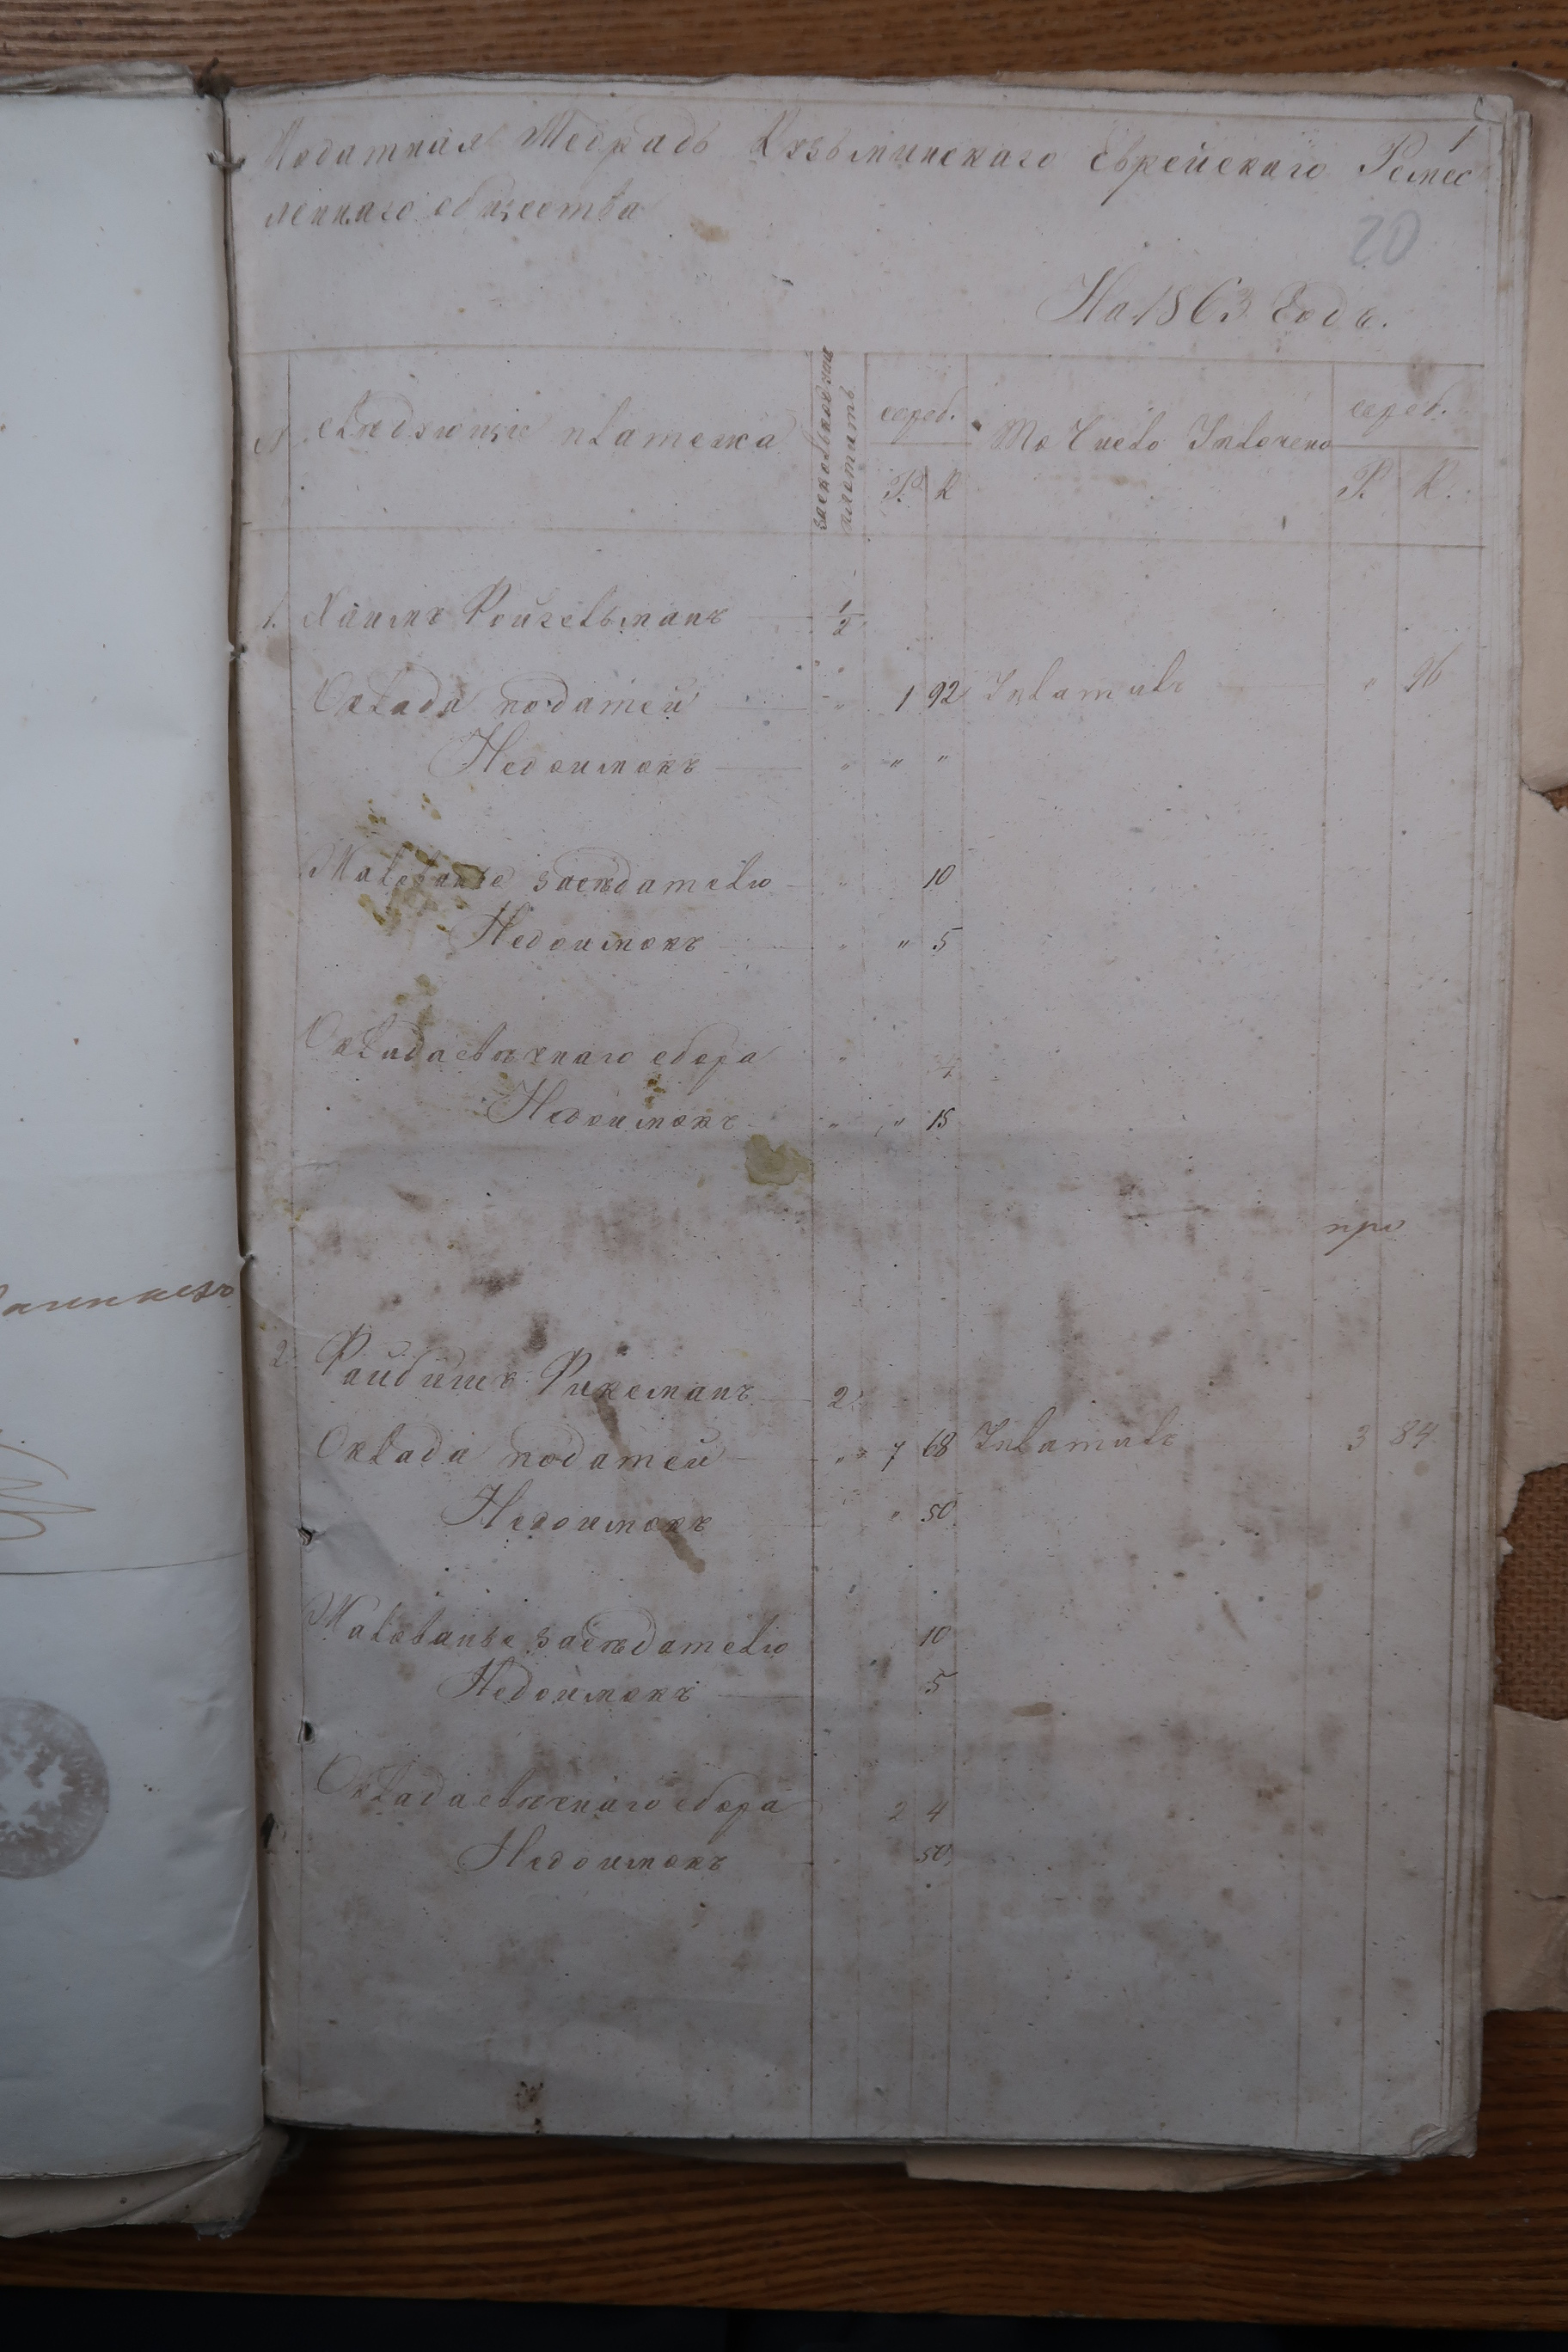 1
Податная Тедрадь Кузьминскаго Еврейскаго Ремес
леннаго общества
20
На 1863 Годъ.
№ следующие платежа
засколько душъ платитъ
сереб.
Р. К
То Число Уплочено
сереб.
Р. К.
1. Хаимъ Ройзельманъ 1/2
Оклада податей " 1 92 Уплатилъ " 96
Недоимокъ " " "
Жалованье заседателю " 10
Недоимокъ " " 5
Оклада свечнаго сбора "
Недоимокъ " " 15
про
2. Файбишъ Фиксманъ 2
Оклада податей " 7 68 Уплатилъ 3 84
Недоимокъ " 50
Жалованье заседателю 10
Недоимокъ 5
Оклада свечнаго сбора 2 4
Недоимокъ 50